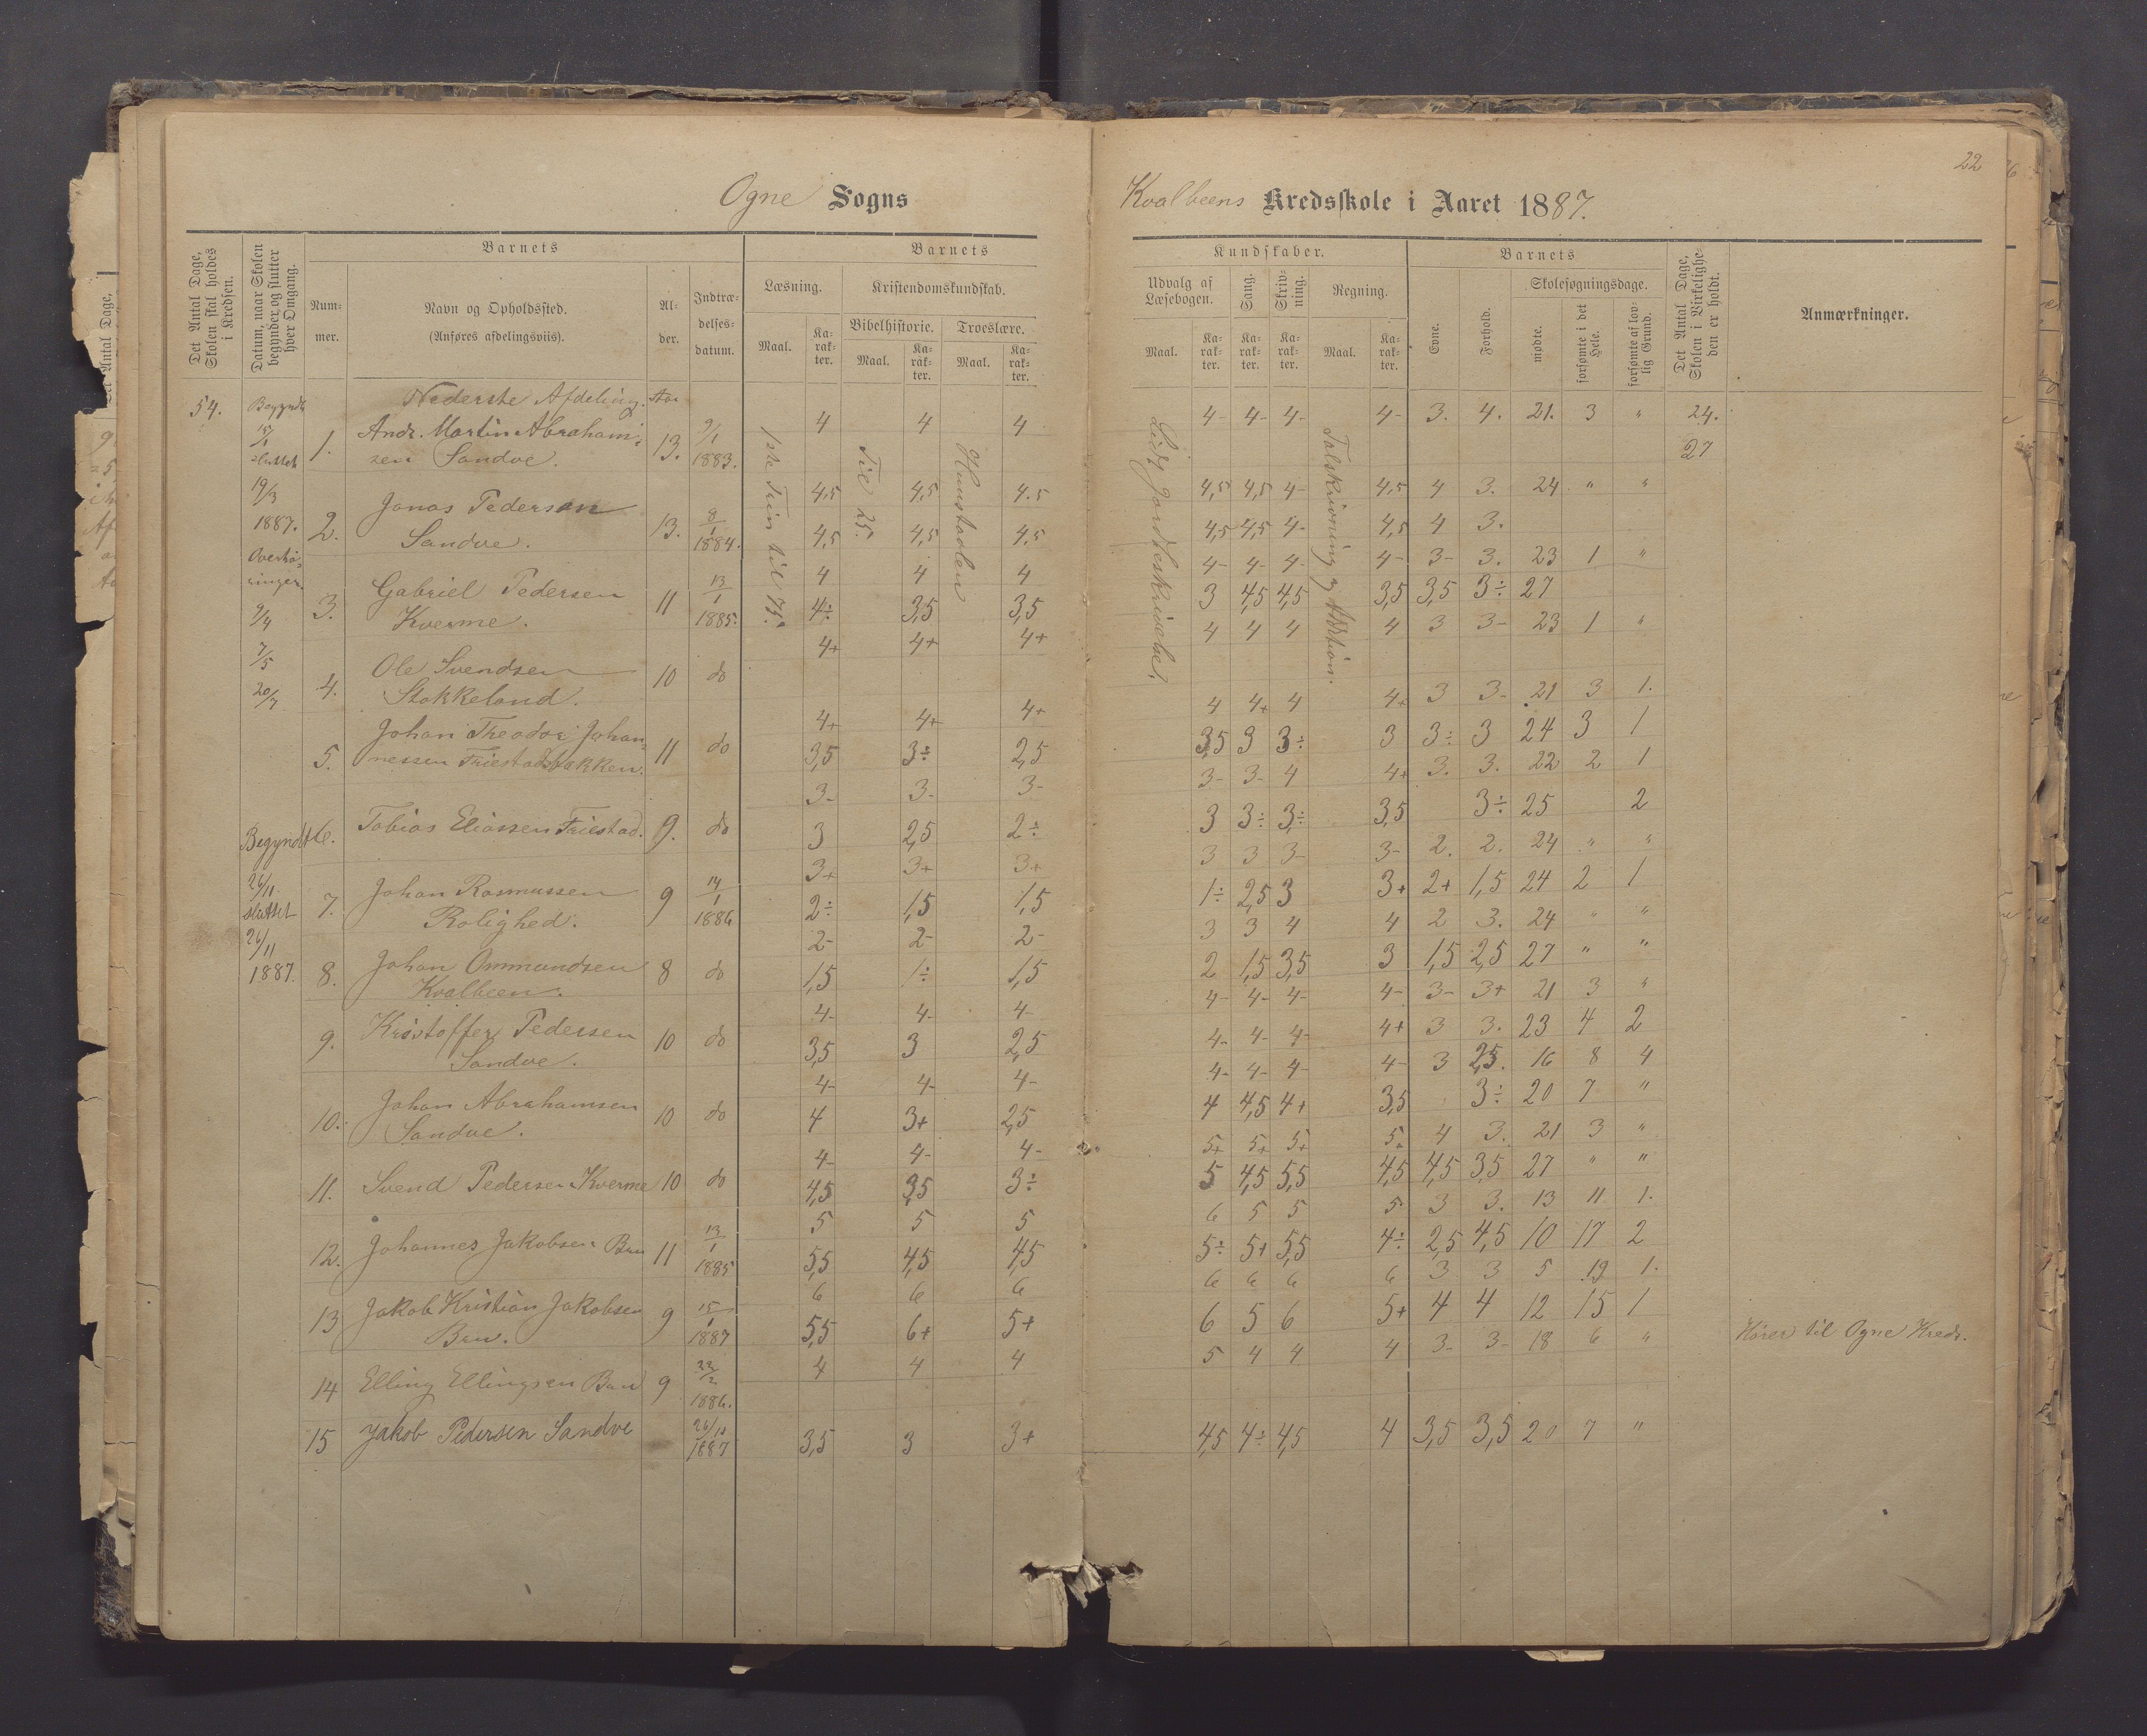 22
Ogne Sogns
Kvalbeens Kredsskole i Aaret 1887.
Det Antal Dage, Skolen skal holdes i Kredsen.
Datum, naar Skolen begynder og slutter hver Omgang.
Barnets
Nummer.
Navn og Opholdssted.
(Anføres afdelingsviis).
Alder.
Indtrædelses-datum.
Barnets
Læsning.
Kristendomskundskab.
Bibelhistorie.
Troeslære.
Maal.
Karakter.
Maal.
Karakter.
Maal.
Karakter.
Kundskaber.
Udvalg af Læsebogen.
Sang.
Skrivning.
Regning.
Maal.
Karakter.
Karakter.
Karakter.
Maal.
Karakter.
Barnets
Evne.
Forhold.
Skolesøgningsdage.
mødte.
forsømte i det Hele.
forsømte af lovlig Grund.
Det Antal Dage, Skolen i Virkeligheden er holdt.
Anmærkninger.
54.
Begyndt
15/1
sluttet
19/3
1887.
Overhøringer
9/4
7/5
20/7
Begyndt
26/11
sluttet
26/11
1887.
Nederste Afdeling.
1. Andr. Martin Abrahamsen Sandve. 13. 9/1 1883.
2. Jonas Pedersen Sandve. 13. 8/1 1884.
3. Gabriel Pedersen Kverme. 11 13/1 1885.
4. Ole Svendsen Stokkeland. 10 do
5. Johan Theodor Johannessen Friestadbakken. 11 do
6. Tobias Eliassen Friestad. 9. do
7. Johan Rasmussen Rolighed. 9 14/1 1886
8. Johan Ommundsen Kvalbeen. 8 do
9. Kristoffer Pedersen Sandve. 10 do
10. Johan Abrahamsen Sandve. 10 do
11. Svend Pedersen Kverme 10 do
12. Johannes Jakobsen Bru 11 13/1 1885
13 Jakob Kristian Jakobsen Bru. 9 15/1 1887
14 Elling Ellingsen Bru 9 22/2 1886.
15 Jakob Pedersen Sandve 26/11 1887
1ste Trin til 75.
Til 25.
Huustavlen
Lidt Jordbeskrivelse.
Talskrivning og Addition.
4 4 4 4- 4- 4- 4- 3. 4. 21. 3 " 24.
27
4,5 4,5 4.5 4,5 4,5 4- 4,5 4 3. 24 " "
4,5 4,5 4,5 4,5 4,5 4- 4,5 4 3.
4 4 4 4- 4- 4- 4- 3- 3. 23 1 "
4÷ 3,5 3,5 3 4,5 4,5 3,5 3,5 3÷ 27
4+ 4+ 4+ 4 4 4 4 3 3- 23 1 "
4+ 4+ 4+ 4 4+ 4 4+ 3 3- 21 3 1.
3,5 3÷ 2,5 3,5 3 3÷ 3 3÷ 3 24 3 1
3- 3- 3- 3- 3- 4 4+ 3. 3. 22 2 1
3 2,5 2÷ 3 3÷ 3÷ 3,5 3÷ 25 2
3+ 3+ 3+ 3 3 3- 3- 2. 2. 24 " "
2÷ 1,5 1,5 1÷ 2,5 3 3+ 2+ 1,5 24 2 1
2- 2- 2- 3 3 4 4 2 3. 24 " "
1,5 1÷ 1,5 2 1,5 3,5 3 1,5 2,5 27 " "
4- 4- 4- 4- 4- 4- 4- 3- 3+ 21 3 "
3,5 3 2,5 4- 4- 4- 4+ 3 3. 23 4 2
4- 4- 4- 4- 4- 4- 4- 3 2,5. 16 8 4
4 3+ 2,5 4 4,5 4+ 3,5 3÷ 20 7 "
4- 4- 4- 5+ 5+ 5+ 5+ 4 3. 21 3 "
4,5 3,5 3÷ 5 4,5 5,5 4,5 4,5 3,5 27 " "
5 5 5 6 5 5 5 3 3. 13 11 1.
5,5 4,5 4,5 5÷ 5+ 5,5 4÷ 2,5 4,5 10 17 2
6 6 6 6 6 6 6 3 3 5 19 1.
5,5 6+ 5+ 6 5 6 5+ 4 4 12 15 1
4 4 4 5 4 4 4 3- 3- 18 6 " Hører til Ogne Kreds.
3,5 3 3+ 4,5 4÷ 4,5 4 3,5 3,5 20 7 "